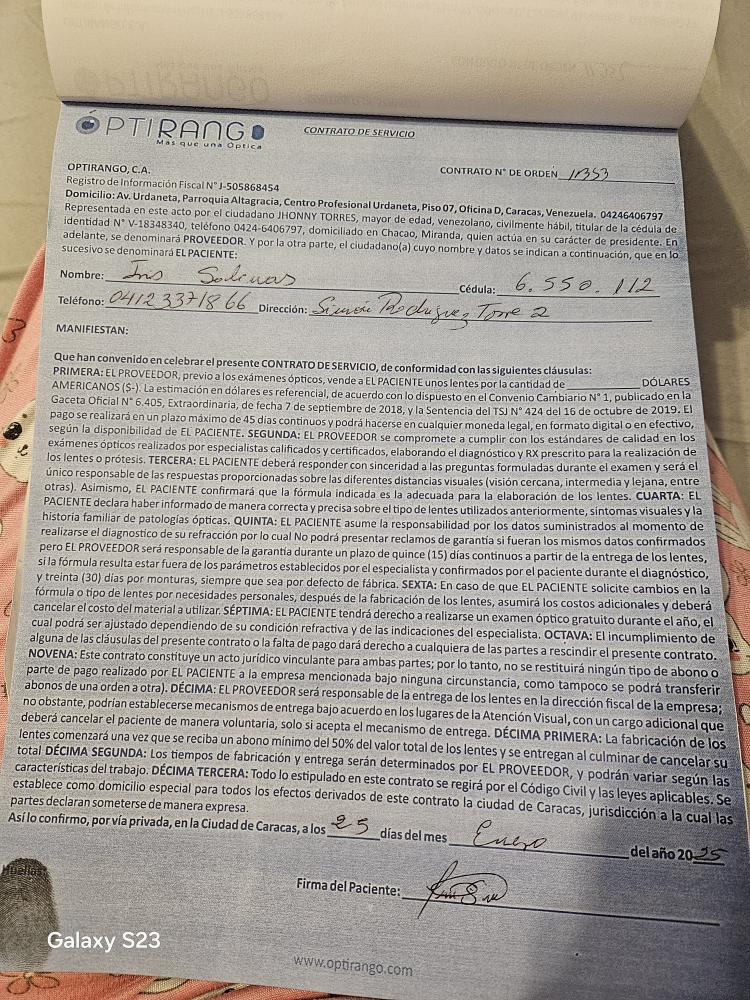 ÓPTIRANGO
Más que una Óptica
CONTRATO DE SERVICIO
OPTIRANGO, C.A.
CONTRATO N° DE ORDEN 11353
Registro de Información Fiscal N° J-505868454
Domicilio: Av. Urdaneta, Parroquia Altagracia, Centro Profesional Urdaneta, Piso 07, Oficina D, Caracas, Venezuela. 04246406797
Representada en este acto por el ciudadano JHONNY TORRES, mayor de edad, venezolano, civilmente hábil, titular de la cédula de
identidad N° V-18348340, teléfono 0424-6406797, domiciliado en Chacao, Miranda, quien actúa en su carácter de presidente. En
adelante, se denominará PROVEEDOR. Y por la otra parte, el ciudadano(a) cuyo nombre y datos se indican a continuación, que en lo
sucesivo se denominará EL PACIENTE:
Nombre: Cédula: 6.550.112
Teléfono: 04123371866 Dirección: Simón Rodríguez Torre 2
MANIFIESTAN:
Que han convenido en celebrar el presente CONTRATO DE SERVICIO, de conformidad con las siguientes cláusulas:
PRIMERA: EL PROVEEDOR, previo a los exámenes ópticos, vende a EL PACIENTE unos lentes por la cantidad de DÓLARES
AMERICANOS ($-). La estimación en dólares es referencial, de acuerdo con lo dispuesto en el Convenio Cambiario N° 1, publicado en la
Gaceta Oficial N° 6.405, Extraordinaria, de fecha 7 de septiembre de 2018, y la Sentencia del TSJ N° 424 del 16 de octubre de 2019. El
pago se realizará en un plazo máximo de 45 días continuos y podrá hacerse en cualquier moneda legal, en formato digital o en efectivo,
según la disponibilidad de EL PACIENTE. SEGUNDA: EL PROVEEDOR se compromete a cumplir con los estándares de calidad en los
exámenes ópticos realizados por especialistas calificados y certificados, elaborando el diagnóstico y RX prescrito para la realización de
los lentes o prótesis. TERCERA: EL PACIENTE deberá responder con sinceridad a las preguntas formuladas durante el examen y será el
único responsable de las respuestas proporcionadas sobre las diferentes distancias visuales (visión cercana, intermedia y lejana, entre
otras). Asimismo, EL PACIENTE confirmará que la fórmula indicada es la adecuada para la elaboración de los lentes. CUARTA: EL
PACIENTE declara haber informado de manera correcta y precisa sobre el tipo de lentes utilizados anteriormente, síntomas visuales y la
historia familiar de patologías ópticas. QUINTA: EL PACIENTE asume la responsabilidad por los datos suministrados al momento de
realizarse el diagnostico de su refracción por lo cual No podrá presentar reclamos de garantía si fueran los mismos datos confirmados
pero EL PROVEEDOR será responsable de la garantía durante un plazo de quince (15) días continuos a partir de la entrega de los lentes,
si la fórmula resulta estar fuera de los parámetros establecidos por el especialista y confirmados por el paciente durante el diagnóstico,
y treinta (30) días por monturas, siempre que sea por defecto de fábrica. SEXTA: En caso de que EL PACIENTE solicite cambios en la
fórmula o tipo de lentes por necesidades personales, después de la fabricación de los lentes, asumirá los costos adicionales y deberá
cancelar el costo del material a utilizar. SÉPTIMA: EL PACIENTE tendrá derecho a realizarse un examen óptico gratuito durante el año, el
cual podrá ser ajustado dependiendo de su condición refractiva y de las indicaciones del especialista. OCTAVA: El incumplimiento de
alguna de las cláusulas del presente contrato o la falta de pago dará derecho a cualquiera de las partes a rescindir el presente contrato.
NOVENA: Este contrato constituye un acto jurídico vinculante para ambas partes; por lo tanto, no se restituirá ningún tipo de abono o
parte de pago realizado por EL PACIENTE a la empresa mencionada bajo ninguna circunstancia, como tampoco se podrá transferir
abonos de una orden a otra). DÉCIMA: EL PROVEEDOR será responsable de la entrega de los lentes en la dirección fiscal de la empresa;
no obstante, podrían establecerse mecanismos de entrega bajo acuerdo en los lugares de la Atención Visual, con un cargo adicional que
deberá cancelar el paciente de manera voluntaria, solo si acepta el mecanismo de entrega. DÉCIMA PRIMERA: La fabricación de los
lentes comenzará una vez que se reciba un abono mínimo del 50% del valor total de los lentes y se entregan al culminar de cancelar su
total DÉCIMA SEGUNDA: Los tiempos de fabricación y entrega serán determinados por EL PROVEEDOR, y podrán variar según las
características del trabajo. DÉCIMA TERCERA: Todo lo estipulado en este contrato se regirá por el Código Civil y las leyes aplicables. Se
establece como domicilio especial para todos los efectos derivados de este contrato la ciudad de Caracas, jurisdicción a la cual las
partes declaran someterse de manera expresa.
Así lo confirmo, por vía privada, en la Ciudad de Caracas, a los 25 días del mes Enero del año 2025
Huellas
Firma del Paciente:
www.optirango.com
Galaxy S23